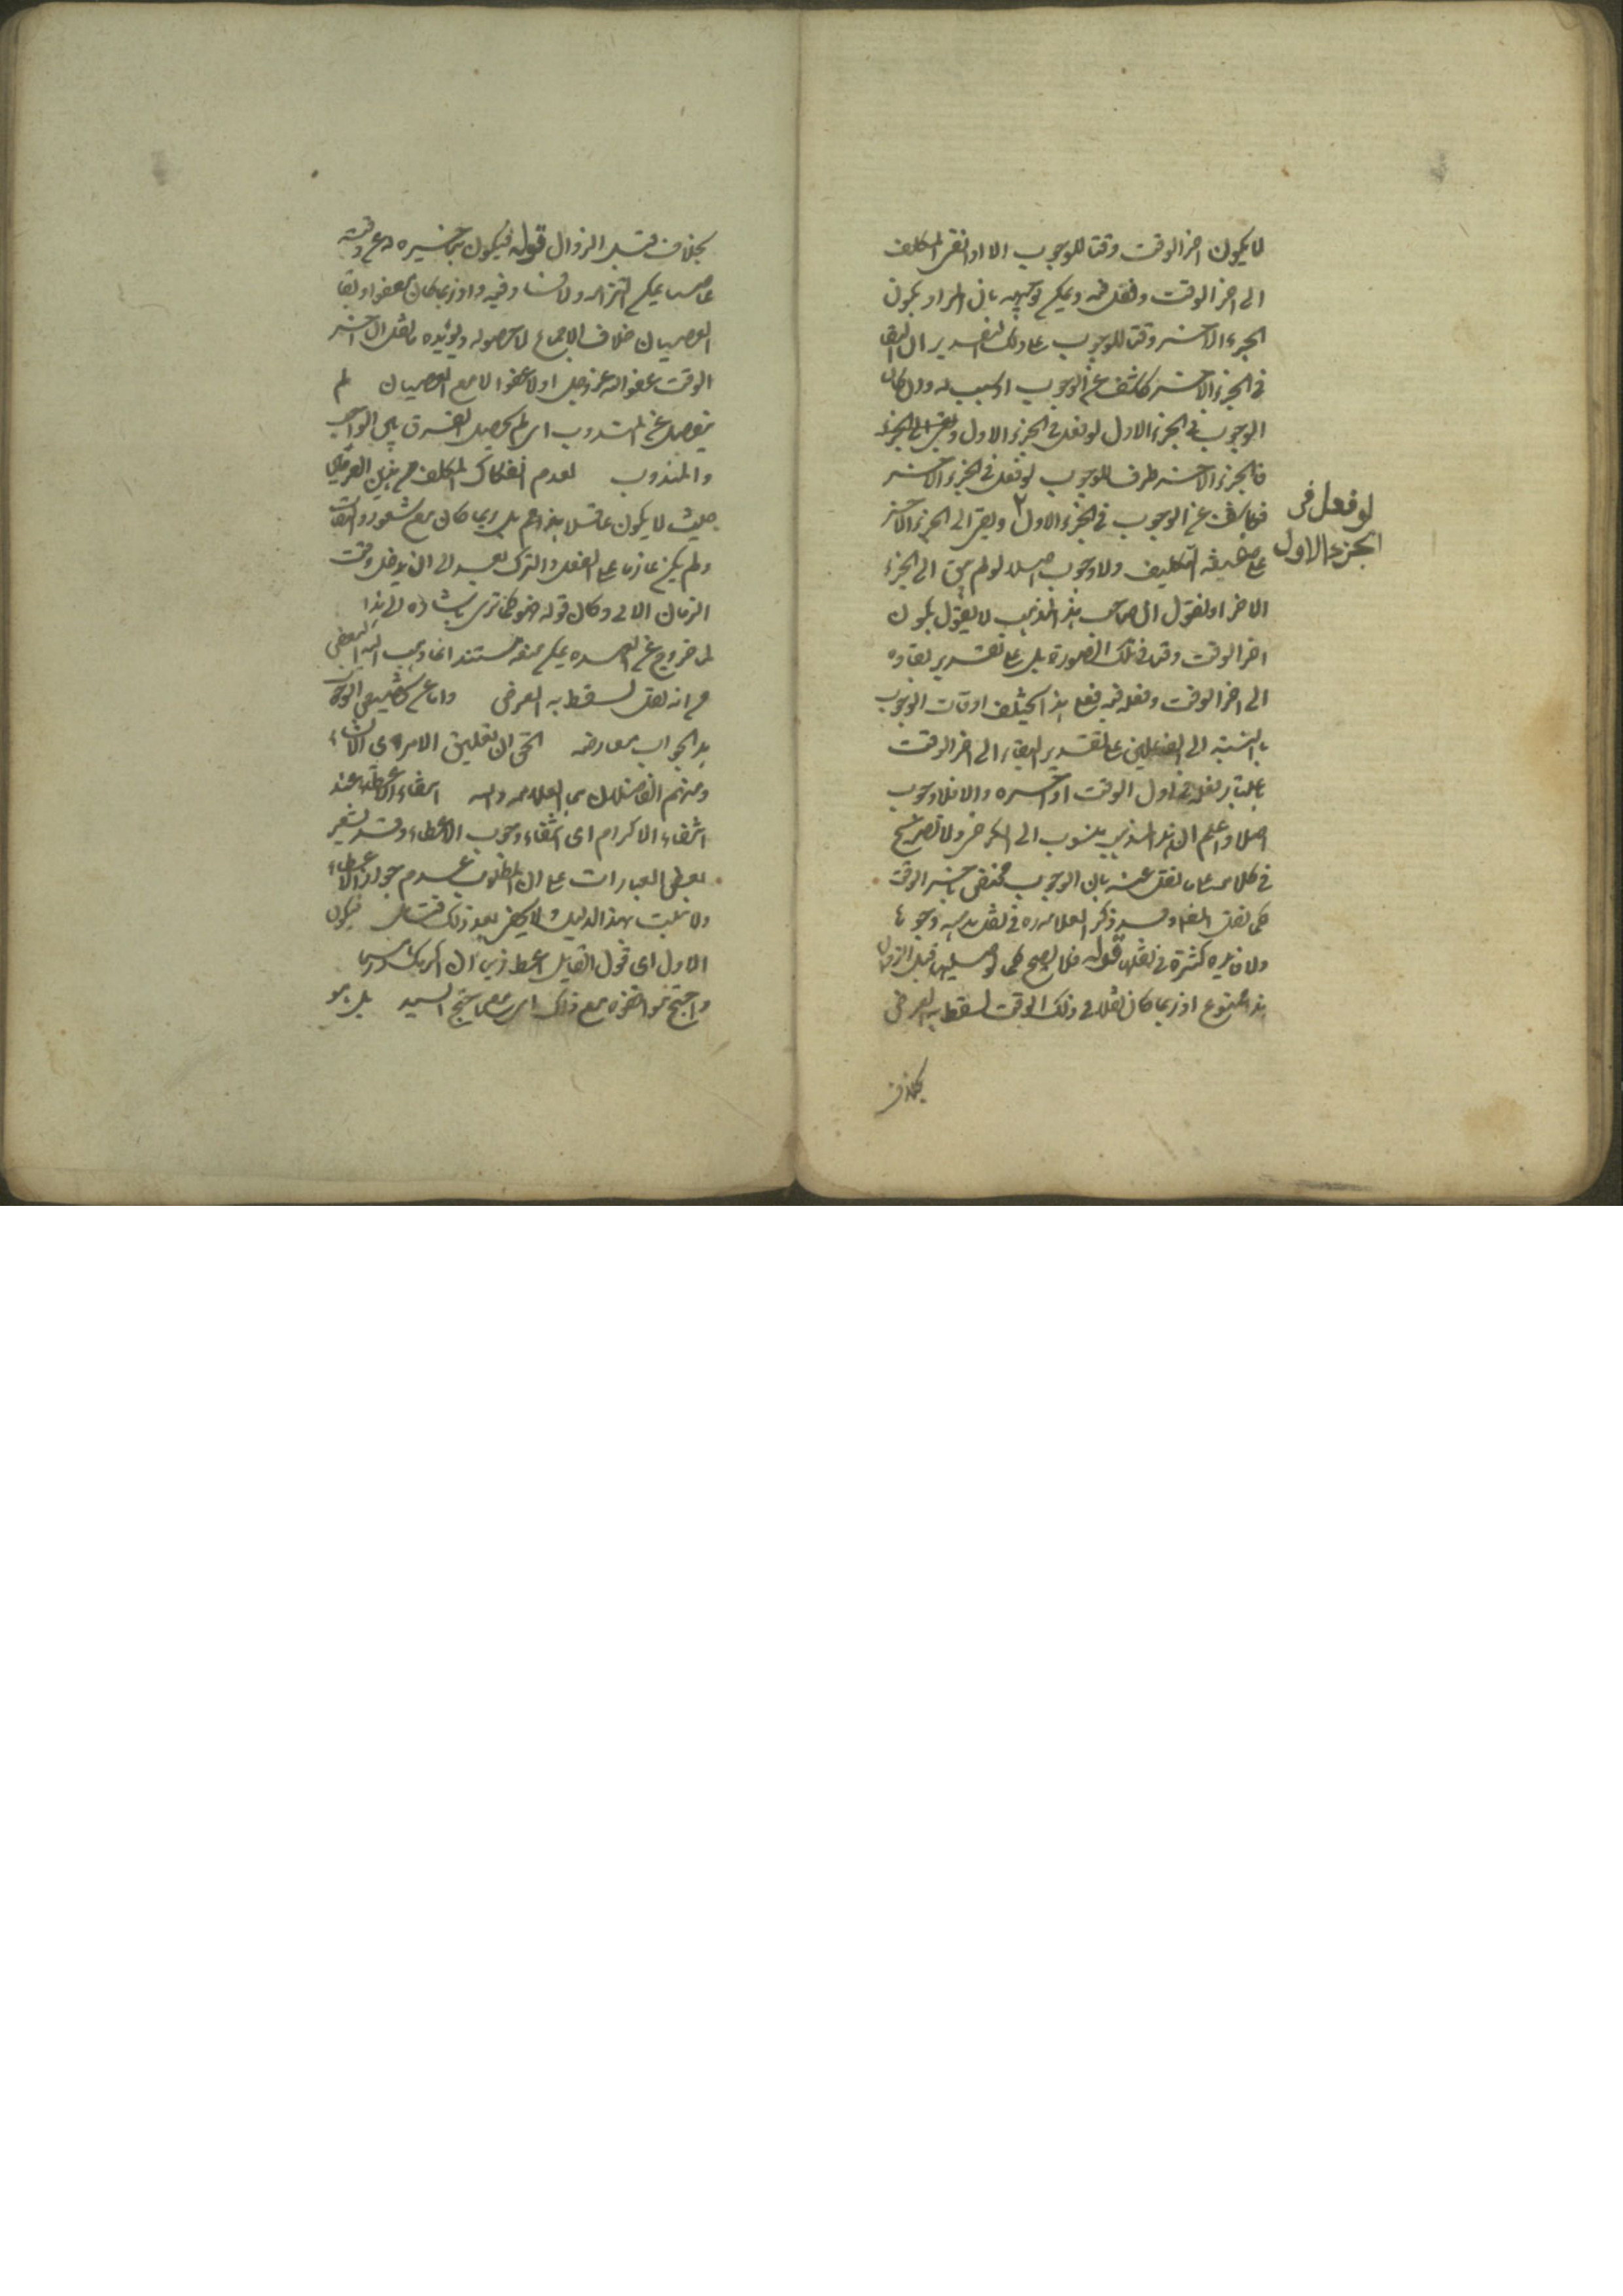 لا يكون اخر الوقت وقتا للوجوب الا اذا بقى المكلف
الى اخر الوقت وفعل فيه ويمكن توجيهه بان المراد بكون
الجزء الاخير وقتا للوجوب على ذلك التقدير ان البقا
فى الجزء الاخير كاشف عن الوجوب او سبب له وان كان
الوجوب فى الجزء الاول لو فعل فى الجزء الاول وبقى الى الجزء
فالجزء الاخير ظرف للوجوب لو فعل فى الجزء الاخير
فكاشف عن الوجوب فى الجزء الاول ٢ وبقى الى الجزء الاخر
لو فعل فى
الجزء الاول
على صفة التكليف ولا وجوب اصلا لو لم يبق الى الجزء
الاخر او نقول ان صاحب هذا المذهب لا يقول بكون
اخر الوقت وقتا فى تلك الصورة بل على تقدير بقاءه
الى اخر الوقت وفعله فيه فعلى هذا يختلف اوقات الوجوب
بالنسبة الى الفعلين على تقدير البقاء الى اخر الوقت
باعتبار فعله فى اول الوقت او اخره والا فلا وجوب
اصلا واعلم ان هذا المذهب منسوب الى الكرخى ولا تصريح
فى كلامه على ما نقل عنه بان الوجوب مختص باخر الوقت
كما نقل المص وقد ذكر العلامه ره فى نقل مذهبه وجوها
ولا فايده كثيرة فى نقلها قوله فلا يصح كما لو صليها قبل الزوال
هذا ممنوع اذ ربما كان نفلا فى ذلك الوقت يسقط به الفرض
بخلاف
بخلاف قبل الزوال قوله فيكون بتاخيره له عن وقته
عاصيا يمكن التزامه ولا فساد فيه واذ ربما كان معفوا وبقا
العصيان خلاف الاجماع لا حصوله ويؤيده ما نقل ان اخر
الوقت عفو الله عز وجل اذ لا عفو الا مع العصيان لم
ينفصل عن المندوب اى لم يحصل الفرق بين الواجب
والمندوب لعدم انفكاك المكلف من هذين العزمين
حيث لا يكون غافلا هذا عم بل ربما كان مع شعور والتفات
ولم يكن عازما على الفعل والترك بعد الى ان يدخل وقت
الزمان الاتى وكان قوله هو كما ترى اشاره الى هذا
لما خرج عن العهده يمكن منعه مستندا بما ذهب اليه البعض
من انه نفل يسقط به الفرض واما على تضييق الوجوب
هذا الجواب معارضه الحق ان تعليق الامر
ومنهم الفاضلان اى العلامه و انتفاء الاعطاء عند
انتفاء الاكرام اى انتفاء وجوب الاعطاء وقد يشعر
بعض العبارات على ان المطلوب عدم جواز الاعطاء
ولا يثبت بهذا الدليل ولا يخفى بعد ذلك فتامل فيكون
الاول اى قول القايل اعط زيدا ان اكرمك درهما
واحتج موافقوه مع ذلك اى مع ما احتج السيد بل هو